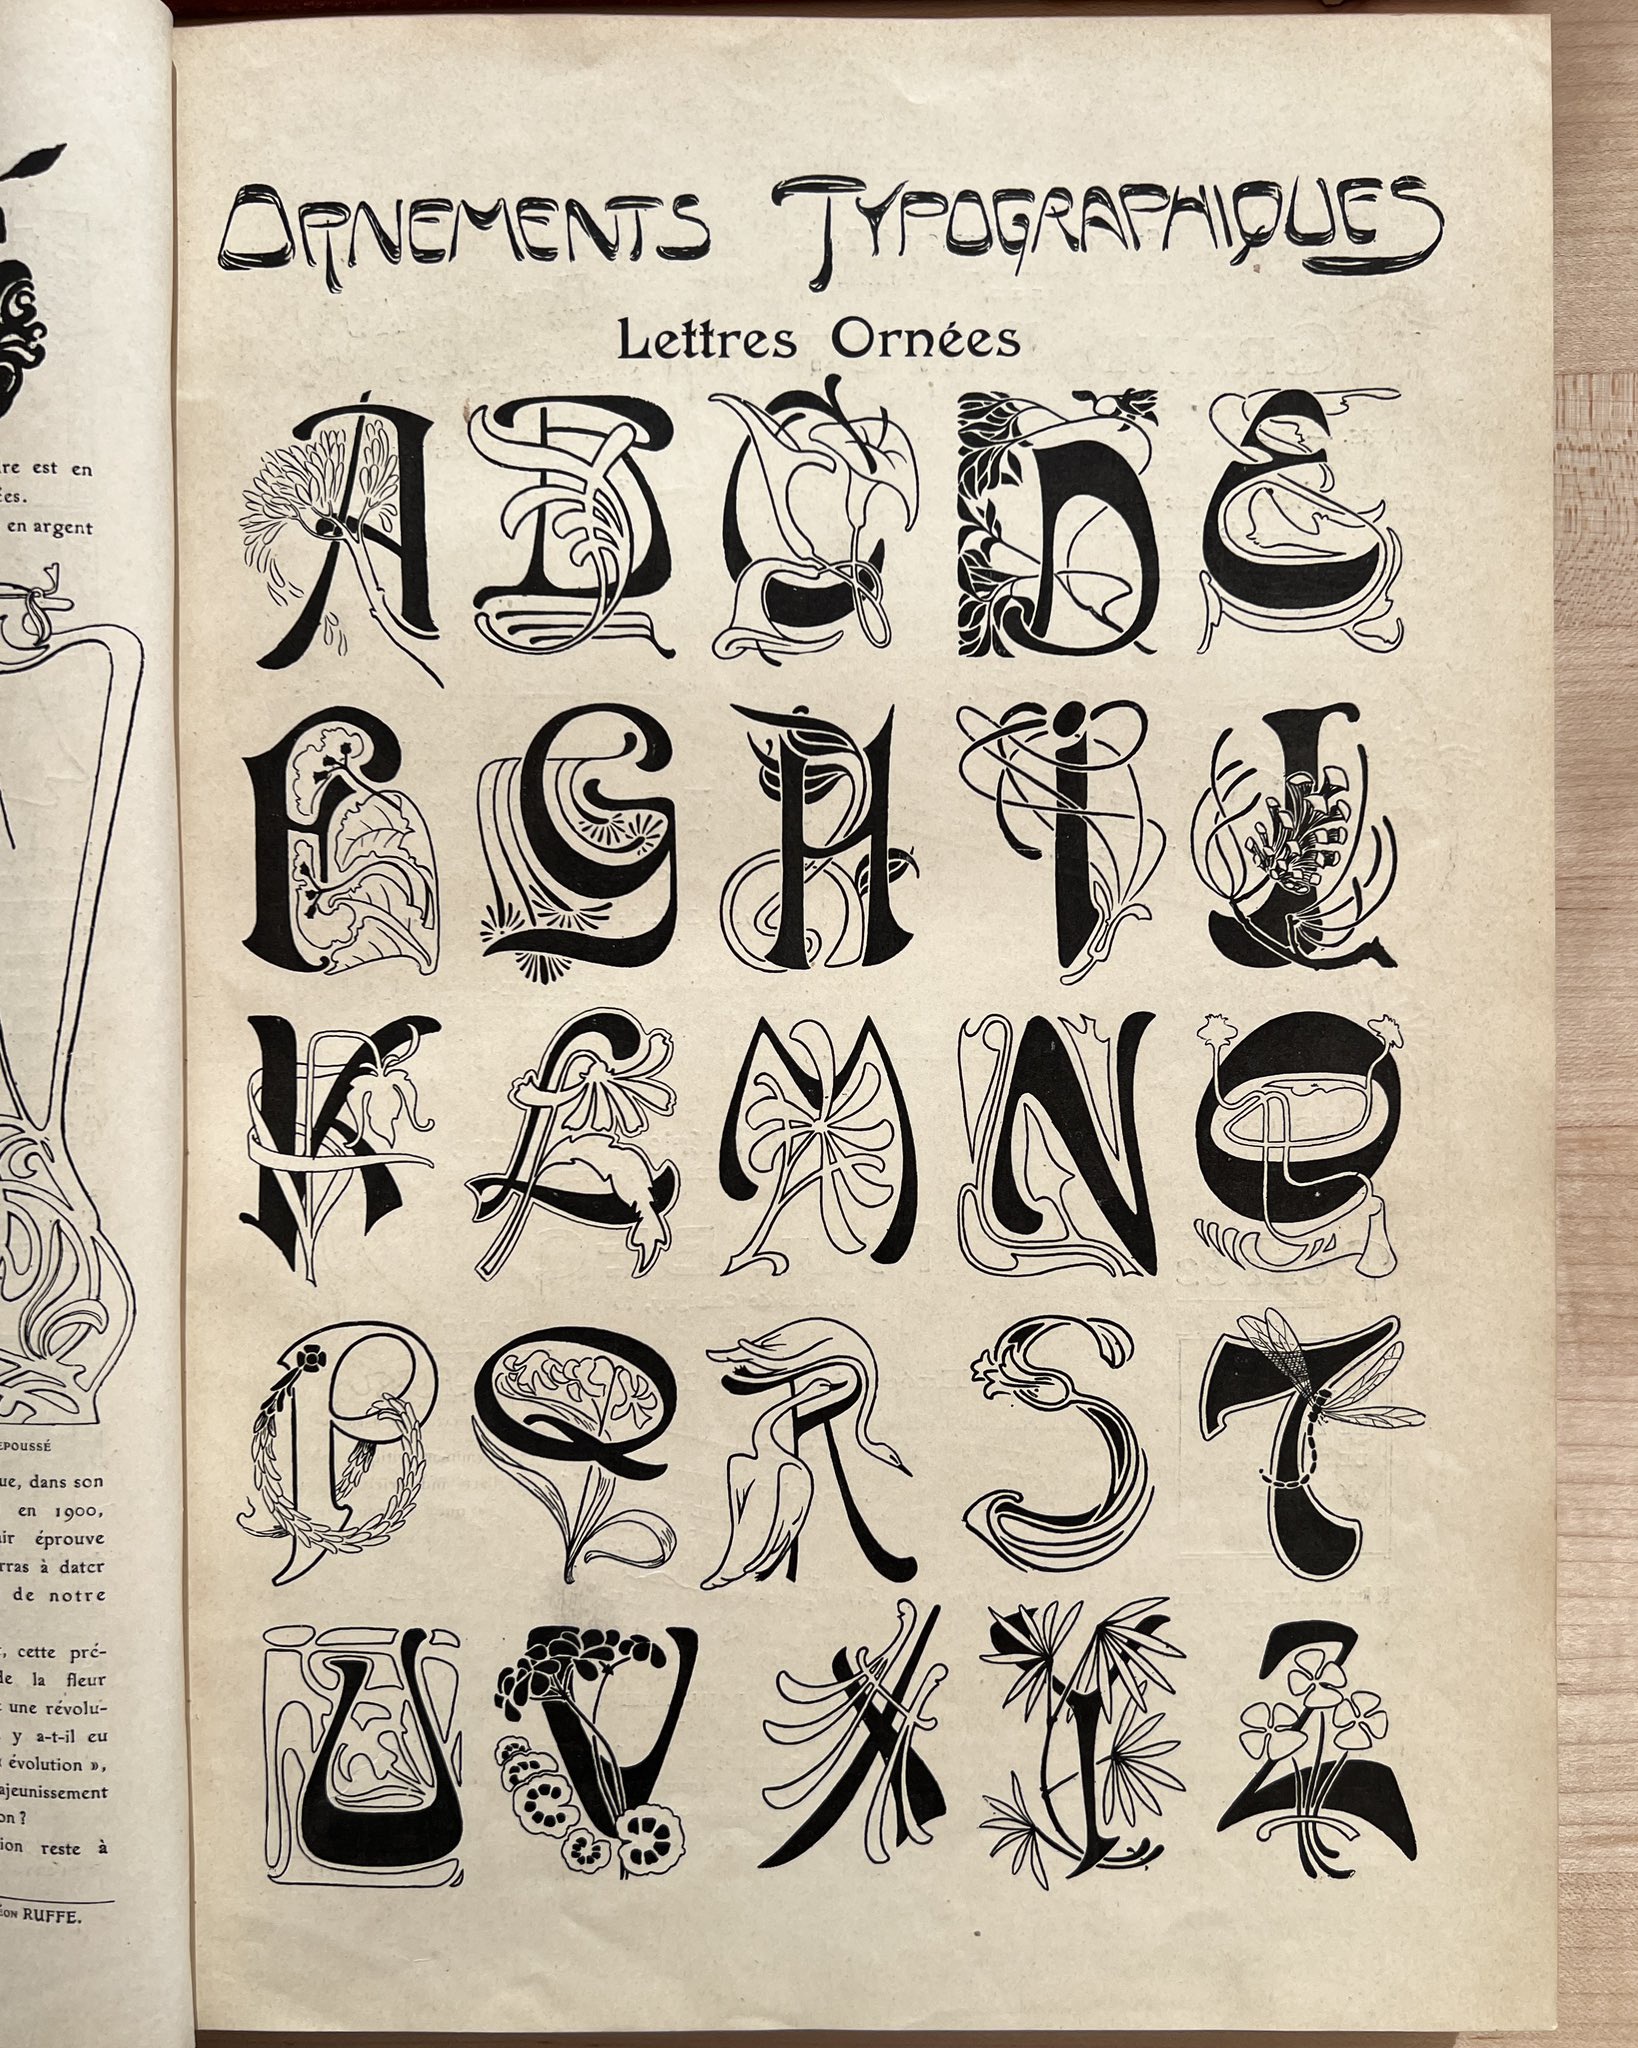 re est en
ées.
en argent
EPOUSSÉ
ue, dans son
en 1900,
ir éprouve
rras à dater
de notre
, cette pré-
de la fleur
une révolu-
y a-t-il eu
évolution »,
ajeunissement
on ?
ion reste à
éon RUFFE.
ORNEMENTS TYPOGRAPHIQUES
Lettres Ornées
A B C D E
F G H I J
K L M N O
P Q R S T
U V X Y Z